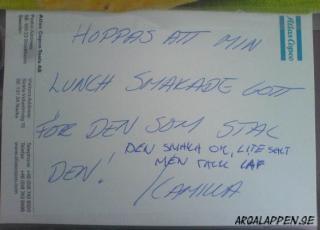 Atlas Copco
HOPPAS ATT MIN
LUNCH SMAKADE GOTT
FÖR DEN SOM STAL
DEN!
DEN SMAKA OK, LITE SALT
MEN TACK
/CAMILLA
Atlas Copco Tools AB
ARGALAPPEN.SE